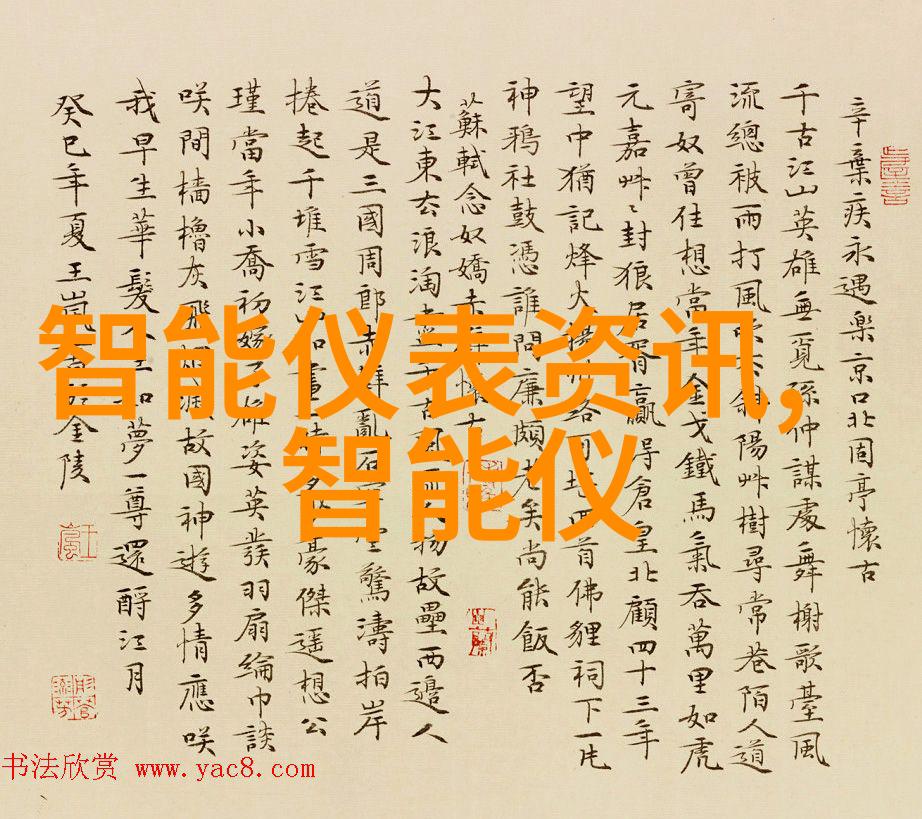 辛棄疾永遇樂京口北固亭懷古
千古江山英雄無覓孫仲謀處舞榭歌臺風
流總被雨打風吹去斜陽艸樹尋常巷陌人道
寄奴曾住想當年金戈鐵馬氣吞萬里如虎
元嘉艸〻封狼居胥贏得倉皇北顧四十三年
望中猶記烽火揚州路可堪回首佛貍祠下一片
神鴉社鼓憑誰問廉頗老矣尚能飯否
蘇軾念奴嬌赤壁懷古
大江東去浪淘盡千古風流人物故壘西邊人
道是三國周郎赤壁亂石穿空驚濤拍岸
捲起千堆雪江山如畫一時多少豪傑遙想公
瑾當年小喬初嫁了雄姿英發羽扇綸巾談
咲間檣櫓灰飛煙滅故國神遊多情應咲
我早生華髮人生如夢一尊還酹江月
癸巳年夏王嵐於金陵
智能仪表资讯,
智能仪
书法欣赏 www.yac8.com